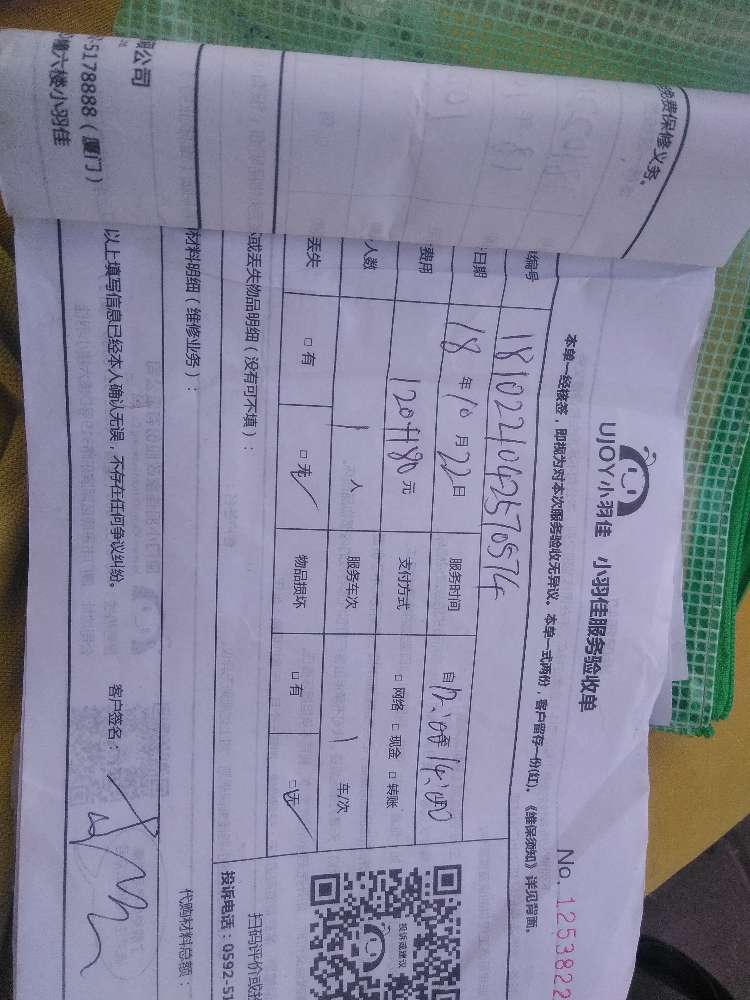 UJOY小羽佳 小羽佳服务验收单
No. 1253822
本单一经核签，即视为对本次服务验收无异议。本单一式两份，客户留存一份(红)。《维保须知》详见背面。
编号 1810221042570574
日期 18年10月22日 服务时间 自12:00至14:00
费用 120+180元 支付方式 □网络 □现金 □转账
人数 1人 服务车次 1车/次
丢失 □有 □无✓ 物品损坏 □有 □无✓
或丢失物品明细（没有可不填）：
扫码评价或投
投诉电话：0592-51
投诉或建议
材料明细（维修业务）：
代购材料总额：
以上填写信息已经本人确认无误，不存在任何争议纠纷。 客户签名：
免费保修义务。
公司
5178888（厦门）
六楼小羽佳